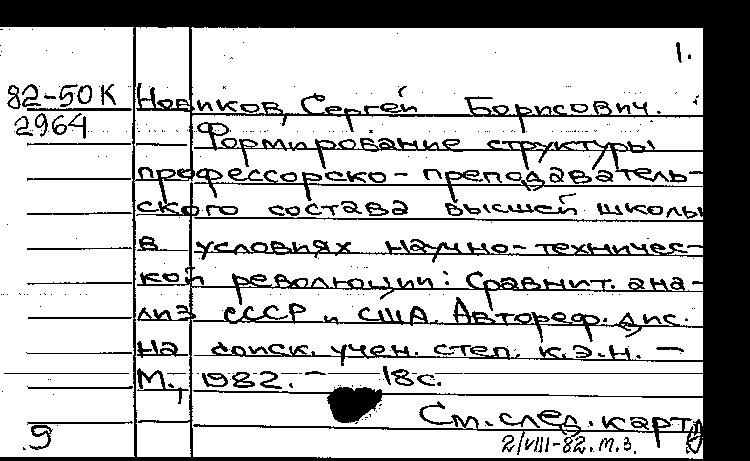 1.
82-50К Новиков, Сергей Борисович.
2964
Формирование структуры
профессорско-преподаватель-
ского состава высшей школы
в условиях научно-техничес-
кой революции: Сравнит. ана-
лиз СССР и США. Автореф. дис.
на соиск. учен. степ. к.э.н. —
М., 1982. - 18 с.
См. след. карт
9
2/VIII-82. м.з.